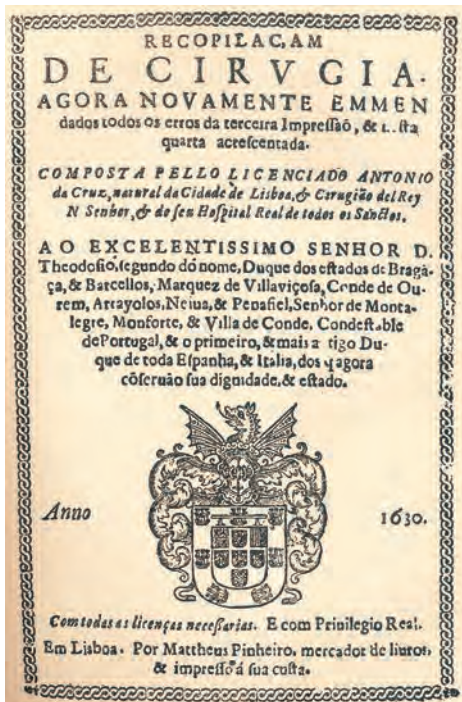 RECOPILAC,AM
DE CIRVGIA.
AGORA NOVAMENTE EMMEN
dados todos os erros da terceira Impressaõ, & sta
quarta acrescentada.
COMPOSTA PELLO LICENCIADO ANTONIO
da Cruz, natural da Cidade de Lisboa, & Cirugião del Rey
N Senhor, & do seu Hospital Real de todos os Sanctos.
AO EXCELENTISSIMO SENHOR D.
Theodosio, segundo do nome, Duque dos estados de Bragã-
ça, & Barcellos, Marquez de Villaviçosa, Conde de Ou-
rem, Arrayolos, Neiua, & Penafiel, Senhor de Monta-
legre, Monforte, & Villa de Conde, Condestable
de Portugal, & o primeiro, & mais a tigo Du-
que de toda Espanha, & Italia, dos q agora
cõseruão sua dignidade, & estado.
Anno 1630.
Com todas as licenças necessarias. E com Priuilegio Real.
Em Lisboa. Por Mattheus Pinheiro, mercador de liuros,
& impresso á sua custa.